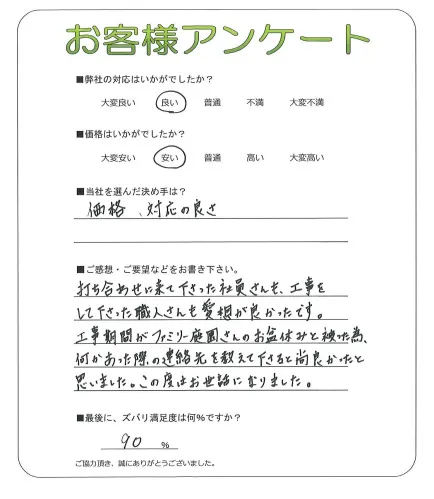 お客様アンケート
■弊社の対応はいかがでしたか？
大変良い 良い 普通 不満 大変不満
■価格はいかがでしたか？
大変安い 安い 普通 高い 大変高い
■当社を選んだ決め手は？
価格、対応の良さ
■ご感想・ご要望などをお書き下さい。
打ち合わせに来て下さった社員さんも、工事を
して下さった職人さんも愛想が良かったです。
工事期間がファミリー庭園さんのお盆休みと被った為、
何かあった際の連絡先を教えて下さると尚良かったと
思いました。この度はお世話になりました。
■最後に、ズバリ満足度は何％ですか？
90 %
ご協力頂き、誠にありがとうございました。